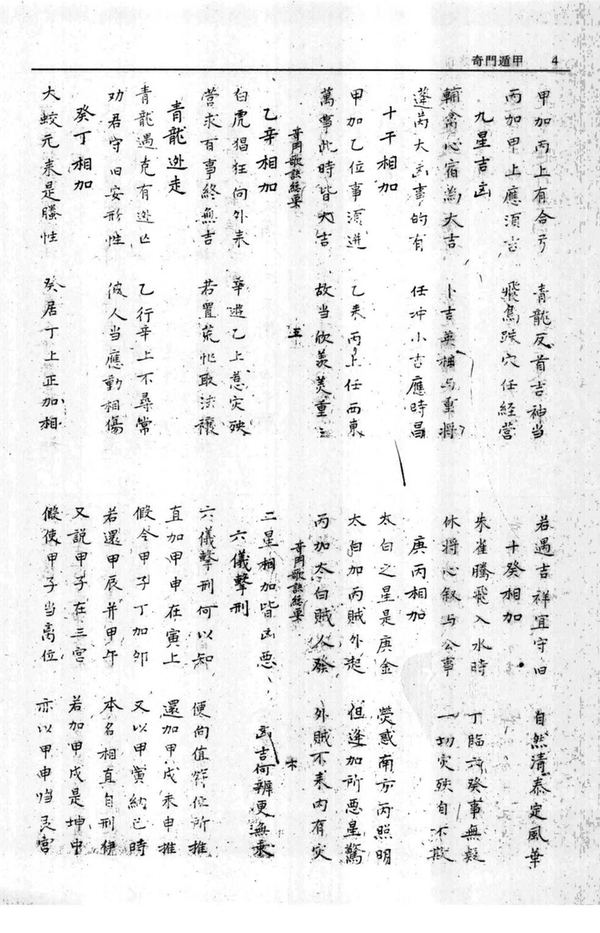 奇門遁甲 4
甲加丙上有合亏 青龍反首吉神当
丙加甲上應須吉 飛鳥跌穴任經营
九星吉凶
輔禽心宿為大吉 卜吉英 与
蓬芮大凶事的有 任冲小吉應時昌
十干相加
甲加乙位事須进 乙来丙上任西東
萬事此時皆大吉 故当欣羡美重々
奇門歌訣總要 五
乙辛相加
白虎猖狂向外来 華遊乙上惹灾殃
营求百事終無吉 若置荒忙取法禳
青龍逃走
青龍遇克有逃亡 乙行辛上不尋常
劝君守旧安形性 彼人当應動相傷
癸丁相加
大蛟元来是螣性 癸居丁上正加相
若遇吉祥宜守旧 自然清泰定風華
十癸相加
朱雀騰飛入水時 丁臨六癸事無疑
休将心叙与公事 一切灾殃自不欺
庚丙相加
太白之星是庚金 熒惑南方丙照明
太白加丙賊外起 但逢加所惡星驚
丙加太白賊人發 外賊不来内有灾
奇門歌訣總要 六
二星相加皆凶惡 凶吉何辨更無乘
六儀擊刑
六儀擊刑何以知 便向值符位所推
直加甲申在寅上 還加甲戌来申推
假令甲子丁加卯 又以甲寅納巳時
若還甲辰并甲午 本名相直自刑
又說甲子在三宮 若加甲戌是坤中
假使甲子当离位 亦以甲申临艮宮